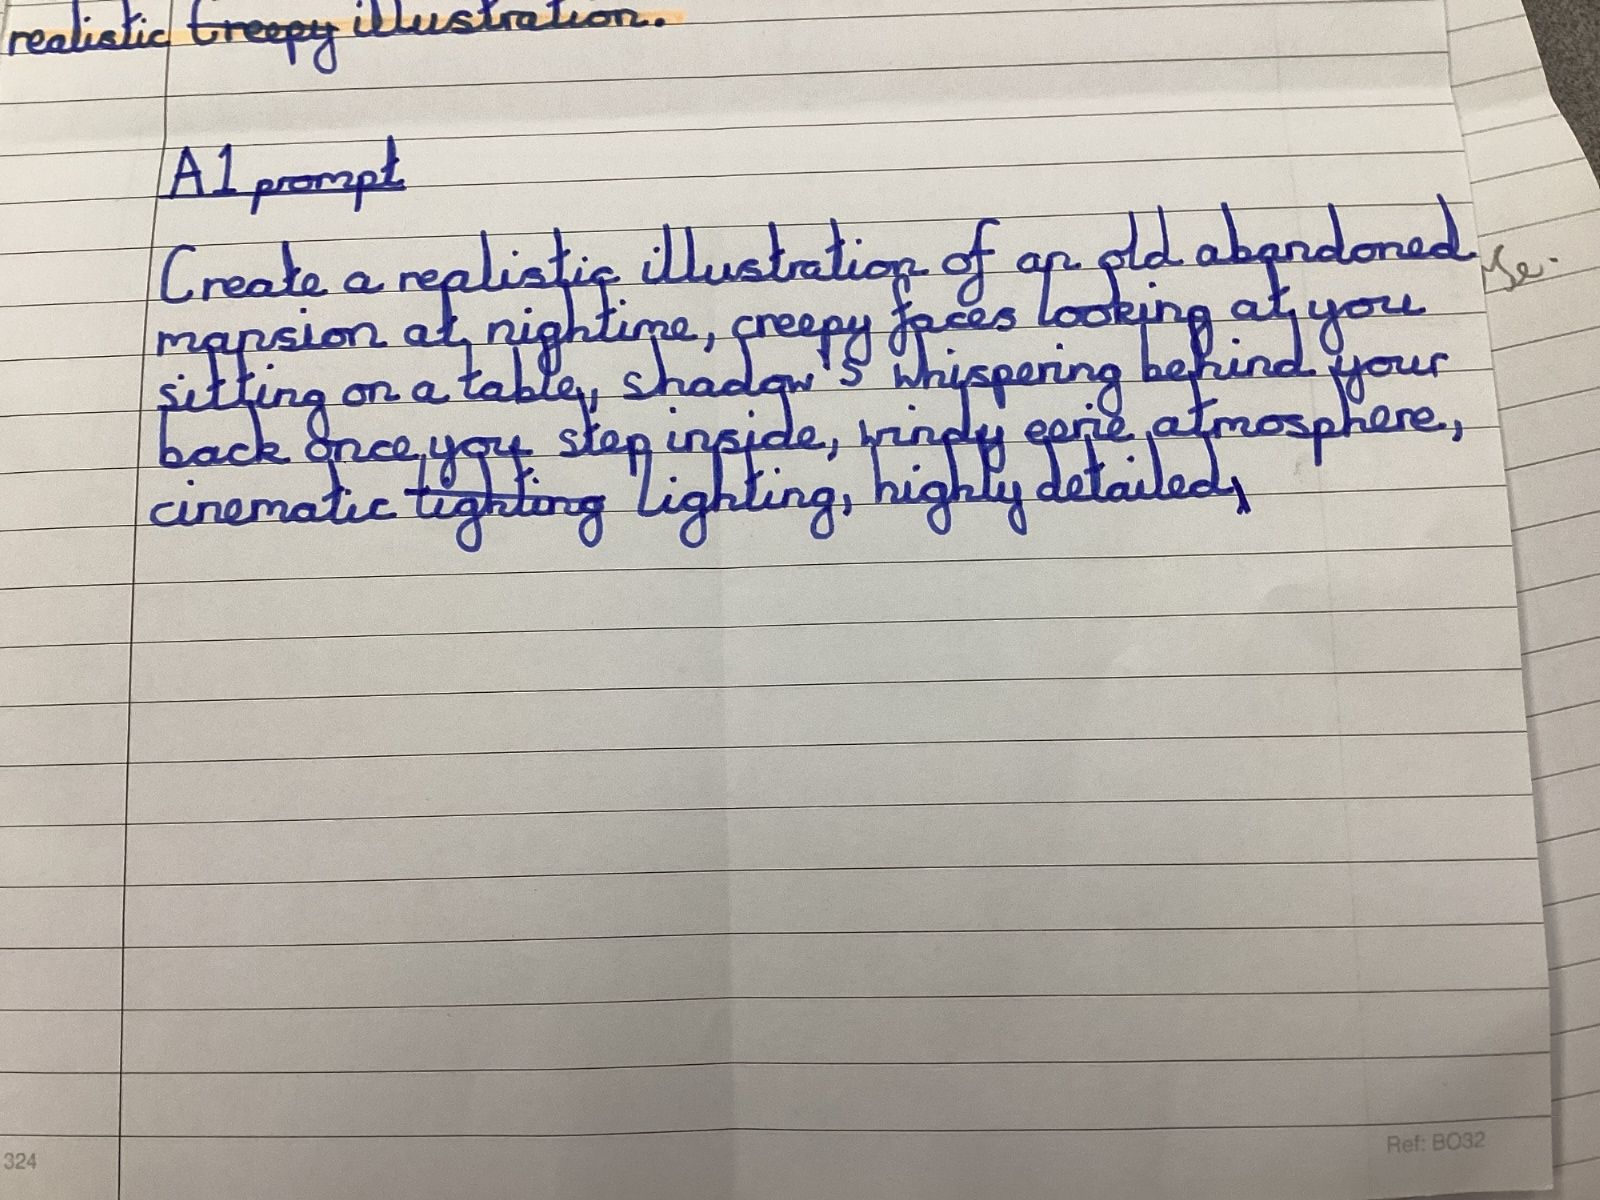 realistic creepy illustration.
A1 prompt
Create a realistic illustration of an old abandoned
mansion at nightime, creepy faces looking at you
sitting on a table, shadow's whispering behind your
back once you step inside, windy eerie atmosphere,
cinematic lighting lighting, highly detailed,
324
Ref: BO32